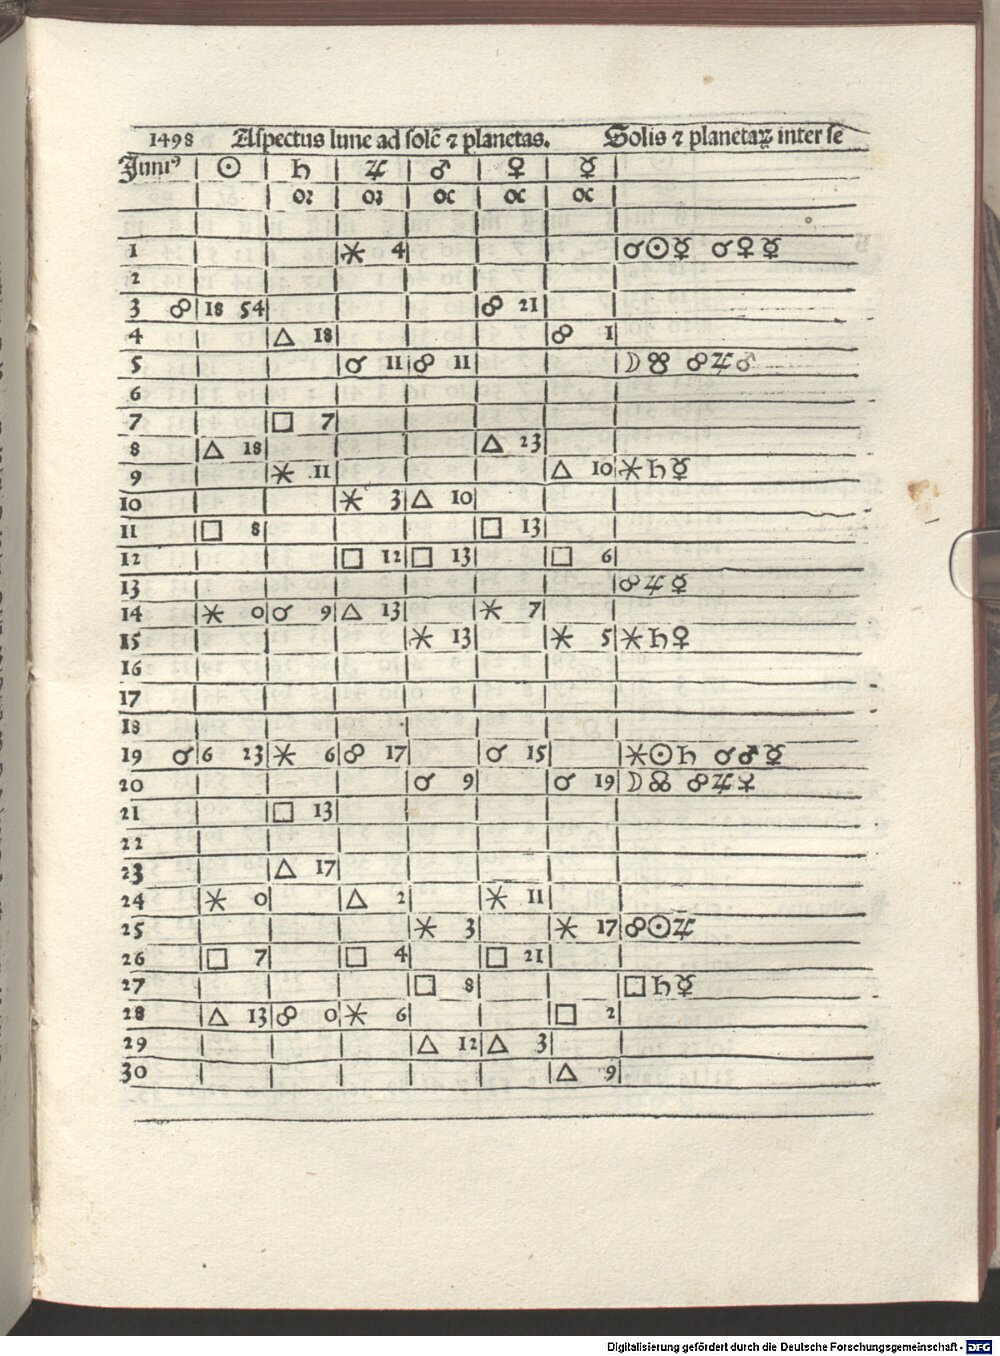 1498 Aſpectus lune ad ſolē ⁊ planetas. Solis ⁊ planetaꝝ inter ſe
Juniꝰ ☉ ♄ ♃ ♂ ♀ ☿
oꝛ oꝛ oc oc oc
1 ⚹ 4 ☌☉☿ ☌♀☿
2
3 ☍ 18 54 ☍ 21
4 △ 18 ☍ 1
5 ☌ 11 ☍ 11 ☽☋ ☍♃♂
6
7 □ 7
8 △ 18 △ 23
9 ⚹ 11 △ 10 ⚹♄☿
10 ⚹ 3 △ 10
11 □ 8 □ 13
12 □ 12 □ 13 □ 6
13 ☍♃☿
14 ⚹ 0 ☌ 9 △ 13 ⚹ 7
15 ⚹ 13 ⚹ 5 ⚹♄♀
16
17
18
19 ☌ 6 23 ⚹ 6 ☍ 17 ☌ 15 ⚹☉♄ ☌♂☿
20 ☌ 9 ☌ 19 ☽☋ ☍♃♀
21 □ 13
22
23 △ 17
24 ⚹ 0 △ 2 ⚹ 11
25 ⚹ 3 ⚹ 17 ☍☉♃
26 □ 7 □ 4 □ 21
27 □ 8 □♄☿
28 △ 13 ☍ 0 ⚹ 6 □ 2
29 △ 12 △ 3
30 △ 9
Digitalisierung gefördert durch die Deutsche Forschungsgemeinschaft - DFG